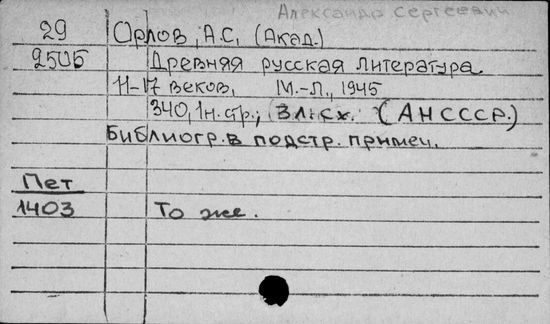 Александр Сергеевич
29 Орлов, А.С. (Акад.)
2505 Древняя русская литература.
11-17 веков. М.-Л., 1945
340, 1 н. стр., (АНСССР.)
Библиогр. в подстр. примеч.
Пет
1403 То же.